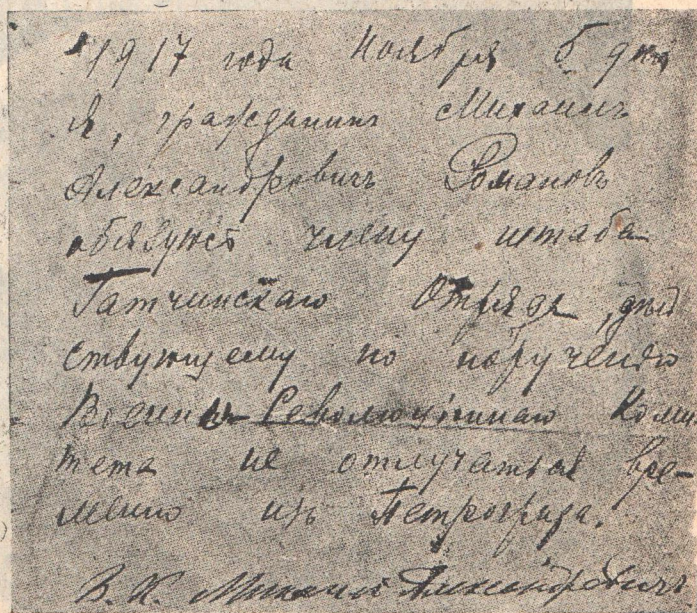 1917 года Ноября 5 дня
Я, гражданинъ Михаилъ
Александровичъ Романовъ
обязуюсь члену штаба
Гатчинскаго Отряда, дѣй
ствующему по порученію
Военно-Революціоннаго Коми
тета не отлучаться вре-
менно изъ Петрограда.
В. К. Михаилъ Александровичъ